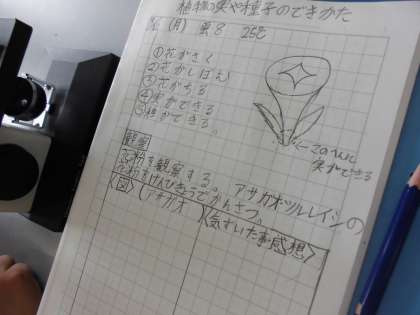 植物の実や種子のできかた
(月) 25℃
①花がさく
②花がしぼむ
③花がちる
④実ができる
⑤種ができる。
←このへんに
実ができる
観察
花粉を観察する。アサガオツルレイシの
花粉をけんびきょうでかんさつ。
〈図〉(アサガオ 〈気づいた事感想〉